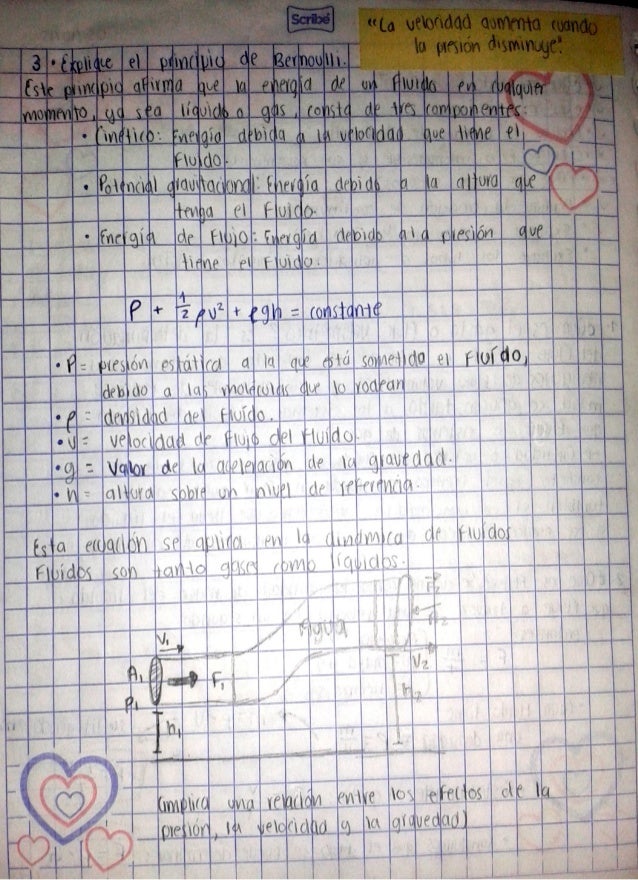 Scribe
"La velocidad aumenta cuando
la presión disminuye".
3. Explique el principio de Bernoulli.
Este principio afirma que la energía de un fluido en cualquier
momento, ya sea líquido o gas, consta de tres componentes:
• Cinético: Energía debida a la velocidad que tiene el
fluido.
• Potencial gravitacional: Energía debido a la altura que
tenga el fluido.
• Energía de Flujo: Energía debido a la presión que
tiene el fluido.
P + 1/2 ρv² + ρgh = constante
• P = presión estática a la que está sometido el fluído,
debido a las moléculas que lo rodean
• ρ = densidad del fluído.
• v = velocidad de flujo del fluido.
• g = Valor de la aceleración de la gravedad.
• h = altura sobre un nivel de referencia.
Esta ecuación se aplica en la dinámica de fluidos
Fluidos son tanto gases como líquidos.
Agua
V₁
V₂
A₁
F₁
P₁
h₁
h₂
(implica una relación entre los efectos de la
presión, la velocidad y la gravedad)